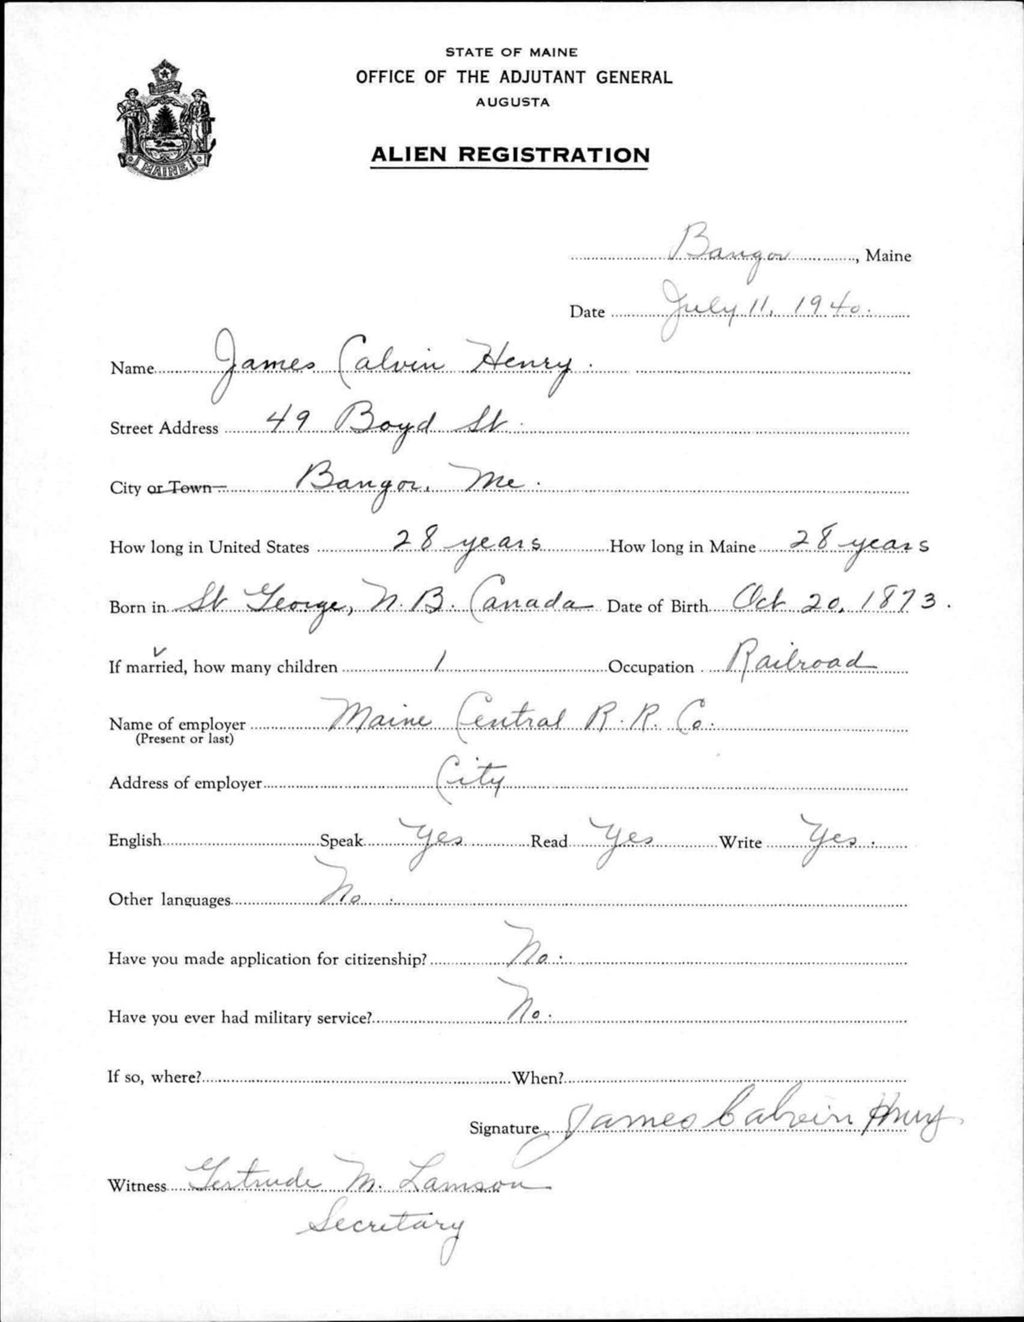 STATE OF MAINE
OFFICE OF THE ADJUTANT GENERAL
AUGUSTA
MAINE
ALIEN REGISTRATION
Bangor, Maine
Date July 11, 1940.
Name James Calvin Henry.
Street Address 49 Boyd St.
City or Town Bangor, Me.
How long in United States 28 years How long in Maine 28 years
Born in St George, N.B. Canada Date of Birth Oct 20, 1873.
If married, how many children 1 Occupation Railroad
Name of employer Maine Central R.R. Co.
(Present or last)
Address of employer City
English Speak Yes Read Yes Write Yes.
Other languages No.
Have you made application for citizenship? No.
Have you ever had military service? No.
If so, where? When?
Signature James Calvin Henry
Witness Gertrude M. Lamson
Secretary